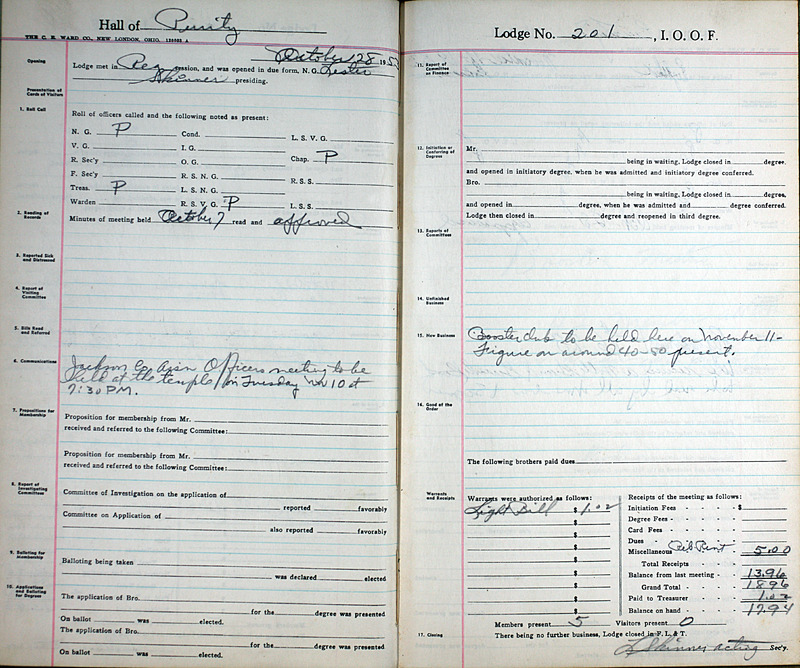 Hall of Purity
THE C. E. WARD CO., NEW LONDON, OHIO.
October 28 195
Opening
Lodge met in Reg session, and was opened in due form, N. G. Lester
Skinner presiding.
Presentation of Cards of Visitors
1. Roll Call
Roll of officers called and the following noted as present:
N. G. P Cond. L. S. V. G.
V. G. I. G. Chap. P
R. Sec'y O. G.
F. Sec'y R. S. N. G. R. S. S.
Treas. P L. S. N. G.
Warden R. S. V. G. P L. S. S.
2. Reading of Records
Minutes of meeting held October 7 read and approved
3. Reported Sick and Distressed
4. Report of Visiting Committee
5. Bills Read and Referred
6. Communications
Jackson Co Ass'n Officers meeting to be
held at the temple on Tuesday Nov 10 at
7:30 P.M.
7. Propositions for Membership
Proposition for membership from Mr.
received and referred to the following Committee:
Proposition for membership from Mr.
received and referred to the following Committee:
8. Report of Investigating Committees
Committee of Investigation on the application of
reported favorably
Committee on Application of
also reported favorably
9. Balloting for Membership
Balloting being taken
was declared elected
10. Applications and Balloting for Degrees
The application of Bro.
for the degree was presented
On ballot was elected.
The application of Bro.
for the degree was presented
On ballot was elected.
Lodge No. 201, I. O. O. F.
11. Report of Committee on Finance
12. Initiation or Conferring of Degrees
Mr.
being in waiting, Lodge closed in degree.
and opened in initiatory degree, when he was admitted and initiatory degree conferred.
Bro.
being in waiting, Lodge closed in degree,
and opened in degree, when he was admitted and degree conferred.
Lodge then closed in degree and reopened in third degree.
13. Reports of Committees
14. Unfinished Business
15. New Business
Booster club to be held here on November 11-
Figure on around 40-50 present.
16. Good of the Order
The following brothers paid dues
Warrants and Receipts
Warrants were authorized as follows:
Light Bill $ 1.02
$
$
$
$
$
$
$
$
Receipts of the meeting as follows:
Initiation Fees $
Degree Fees
Card Fees
Dues
Miscellaneous Reb Rent 5.00
Total Receipts
Balance from last meeting 13.96
Grand Total 18.96
Paid to Treasurer 1.02
Balance on hand 17.94
Members present 5 Visitors present 0
17. Closing
There being no further business, Lodge closed in F. L. & T.
L Skinner acting Sec'y.